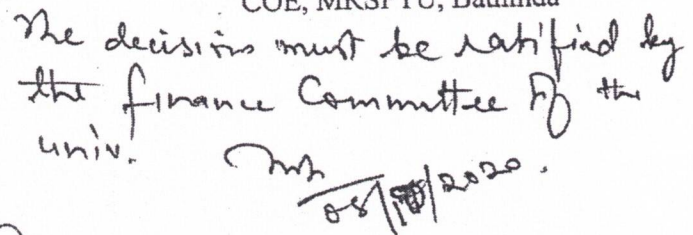 COE, MRSPTU, Bathinda
The decisions must be ratified by
the finance Committee of the
univ.
08/10/2020.